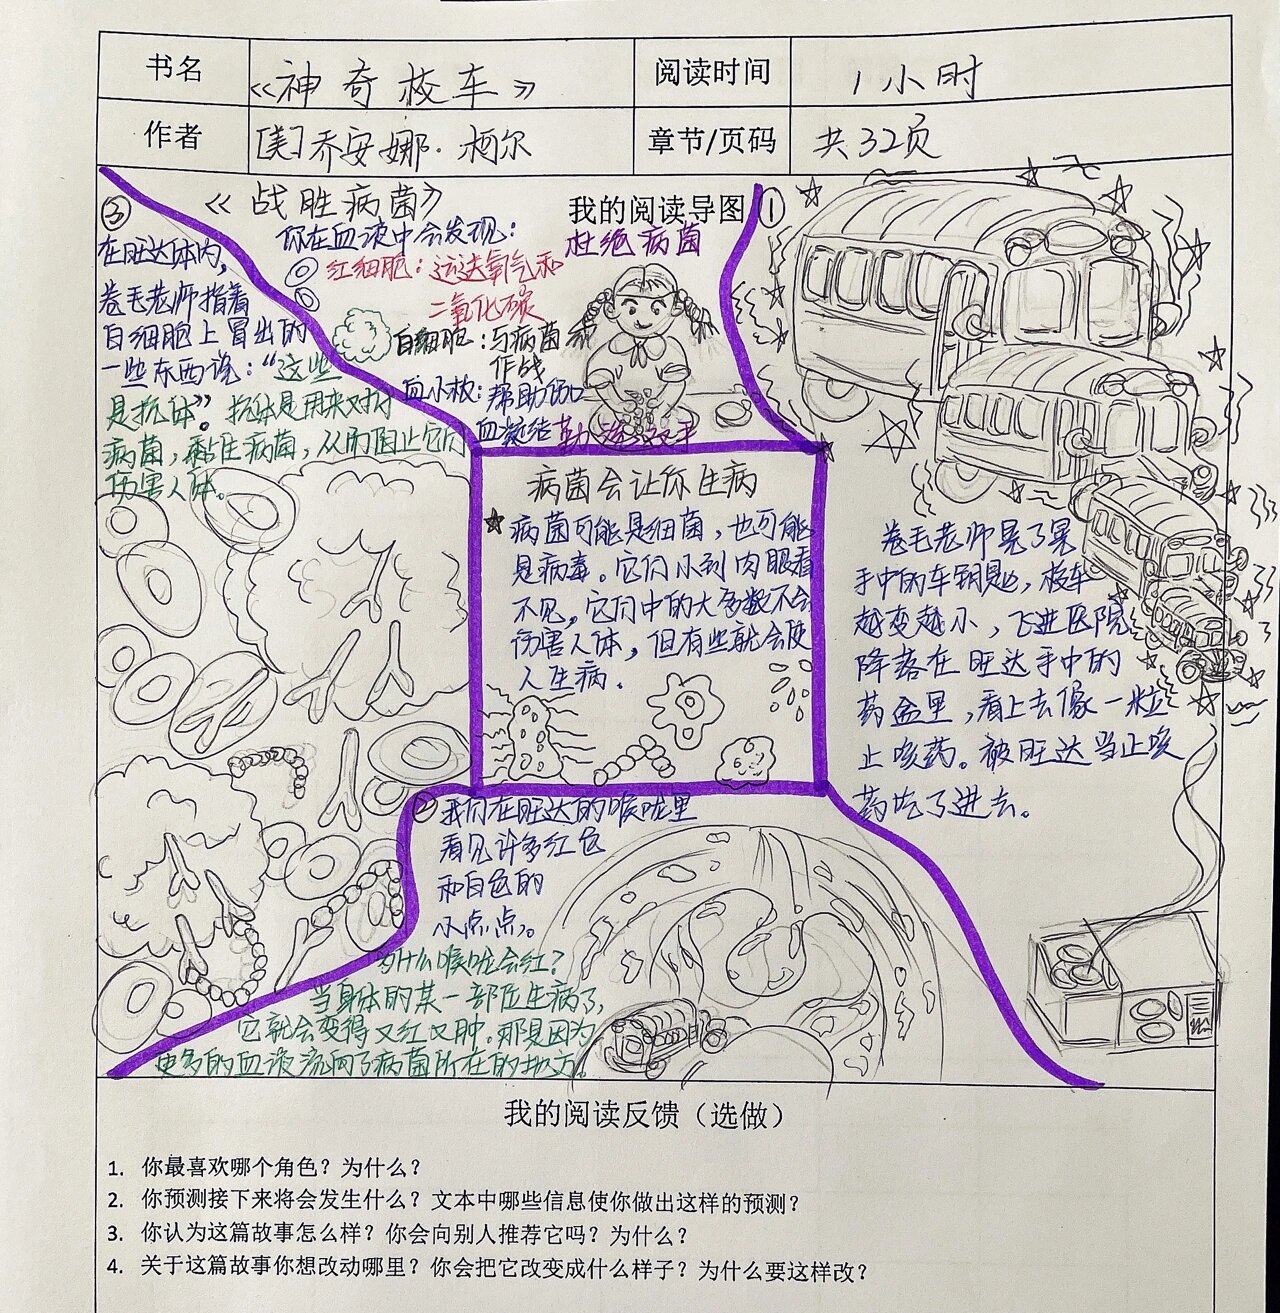 书名
《神奇校车》
阅读时间
1小时
作者
[美]乔安娜·柯尔
章节/页码
共32页
《战胜病菌》
我的阅读导图
杜绝病菌
你在血液中会发现：
红细胞：运送氧气和
二氧化碳
白细胞：与病菌
作战
血小板：帮助伤口
血凝结
勤洗双手
①
卷毛老师晃了晃
手中的车钥匙，校车
越变越小，飞进医院
降落在旺达手中的
药盒里，看上去像一粒
止咳药。被旺达当止咳
药吃了进去。
病菌会让你生病
病菌可能是细菌，也可能
是病毒。它们小到肉眼看
不见，它们中的大多数不会
伤害人体，但有些就会使
人生病.
②我们在旺达的喉咙里
看见许多红色
和白色的
小点点。
为什么喉咙会红？
当身体的某一部位生病了，
它就会变得又红又肿。那是因为
更多的血液流向了病菌所在的地方。
③
在旺达体内，
卷毛老师指着
白细胞上冒出的
一些东西说：“这些
是抗体”。抗体是用来对抗
病菌，黏住病菌，从而阻止它们
伤害人体。
我的阅读反馈（选做）
1. 你最喜欢哪个角色？为什么？
2. 你预测接下来将会发生什么？文本中哪些信息使你做出这样的预测？
3. 你认为这篇故事怎么样？你会向别人推荐它吗？为什么？
4. 关于这篇故事你想改动哪里？你会把它改变成什么样子？为什么要这样改？